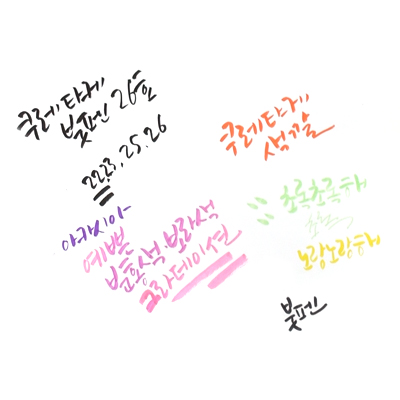 쿠레타케
붓펜 26호
22.23.25.26
아카시아
예쁜
분홍색·보라색
그라데이션
쿠레타케
색깔
초록초록해
노랑노랑해
붓펜